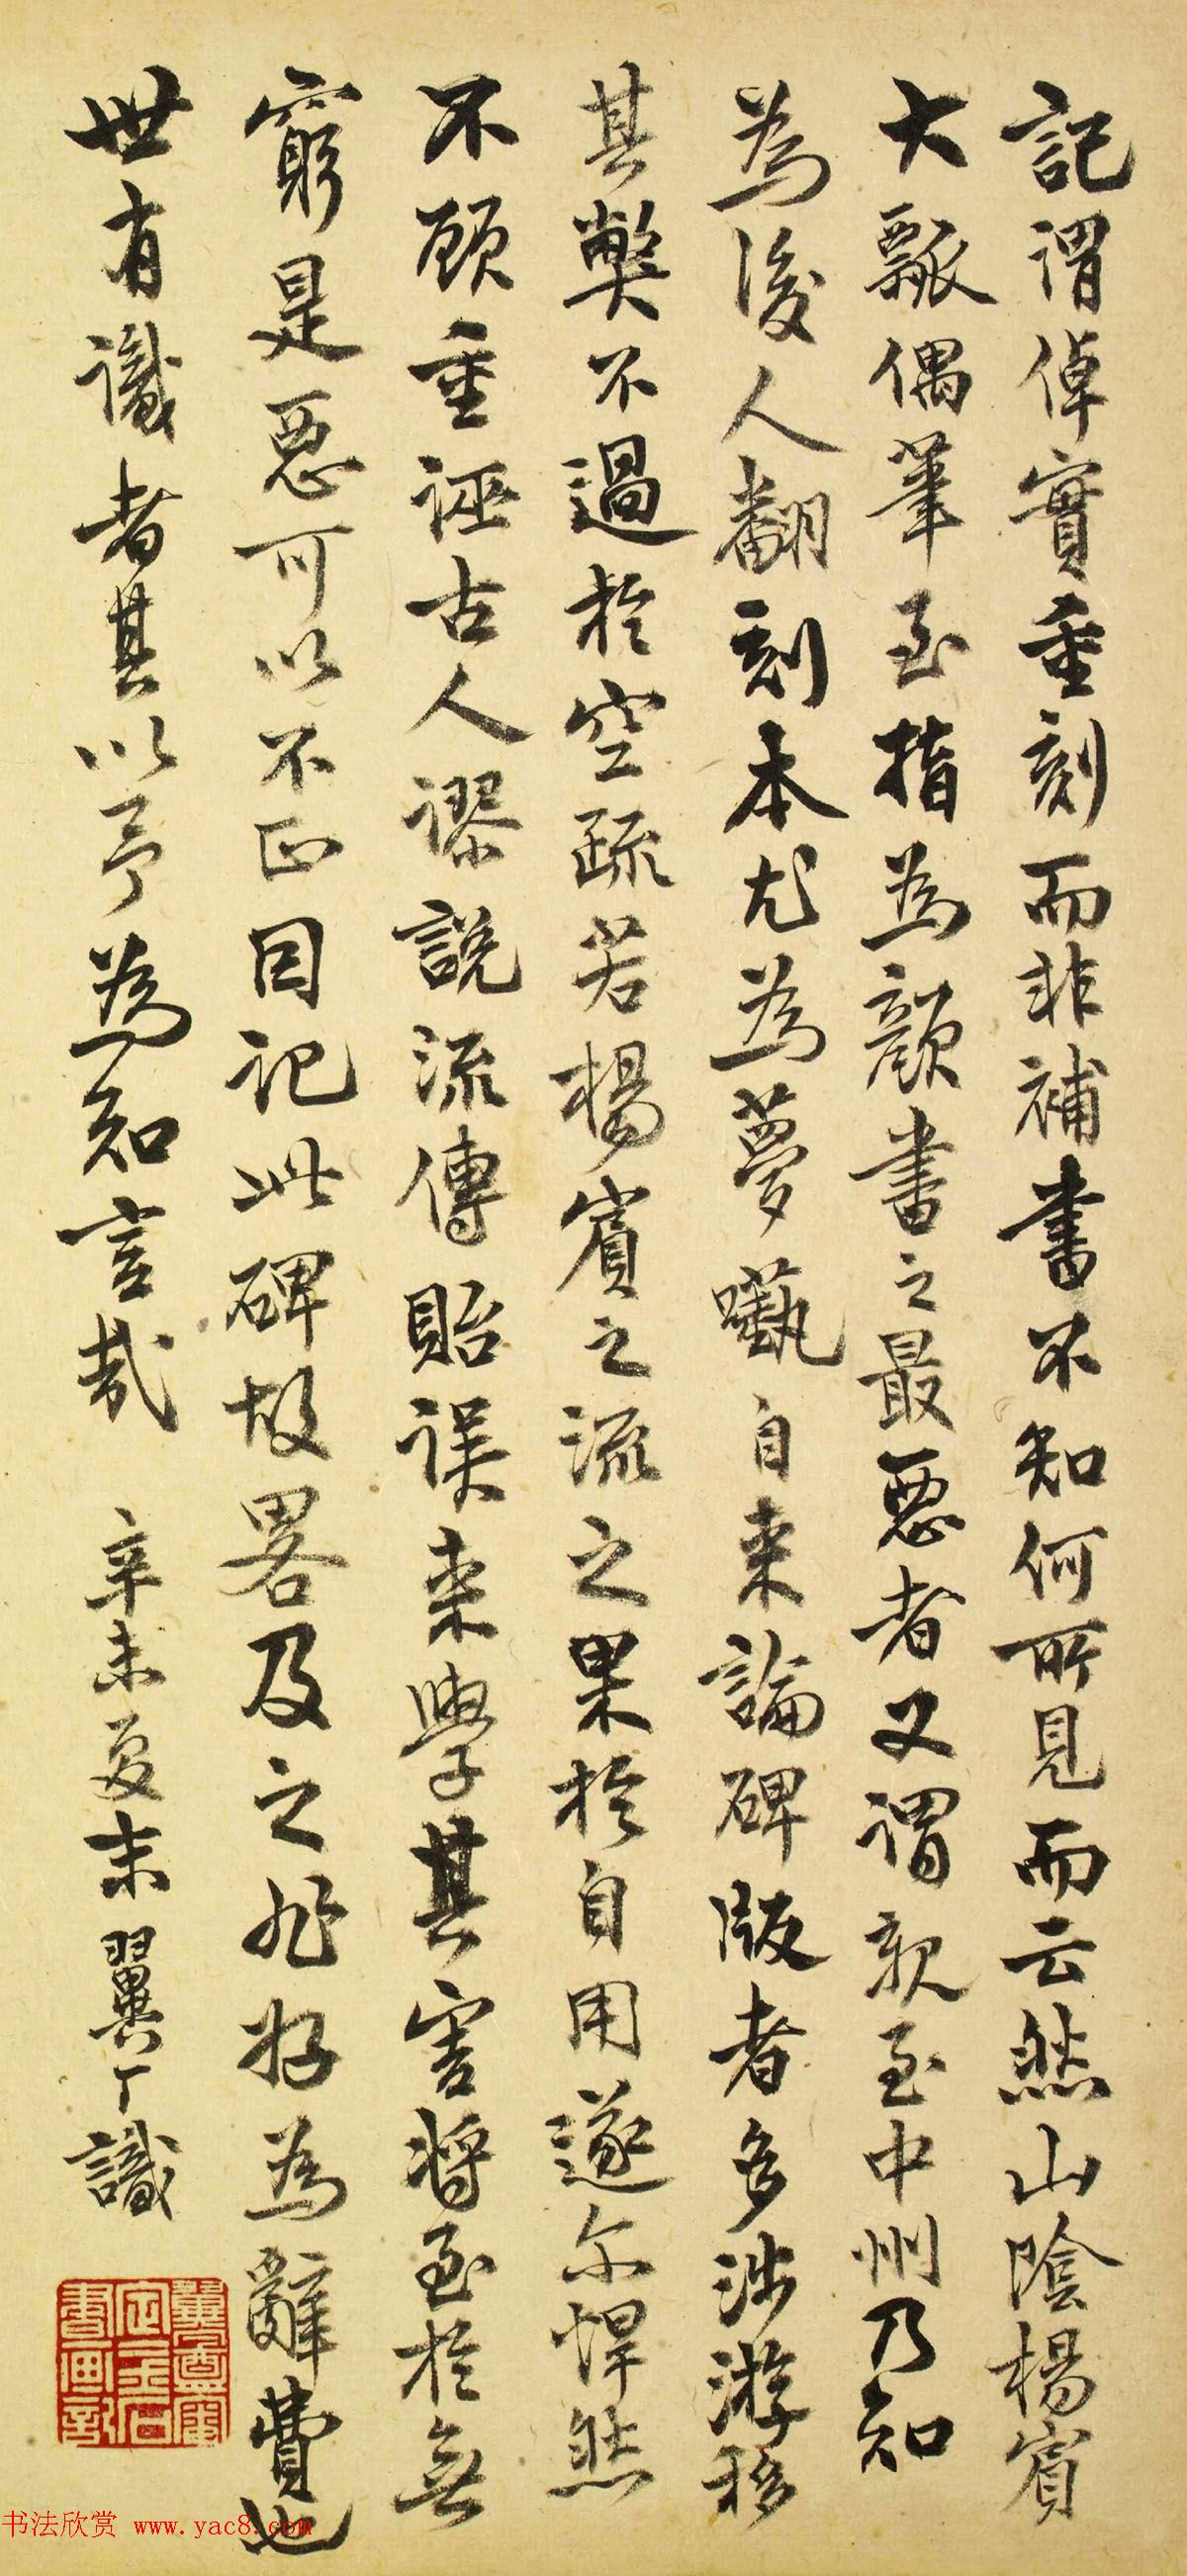 記謂倬實重刻而非補書不知何所見而云然山陰楊賓
大瓢偶筆至指為顏書之最惡者又謂親至中州乃知
為後人翻刻本尤為夢囈自来論碑版者多涉游移
其弊不過於空疏若楊賓之流之果於自用遂尔悍然
不顧重誣古人謬說流傳貽誤来學其害將至於無
窮是惡可以不正因記此碑故畧及之非好為辭費也
世有識者其以予為知言哉 辛未夏末翼丁識
书法欣赏 www.yac8.com